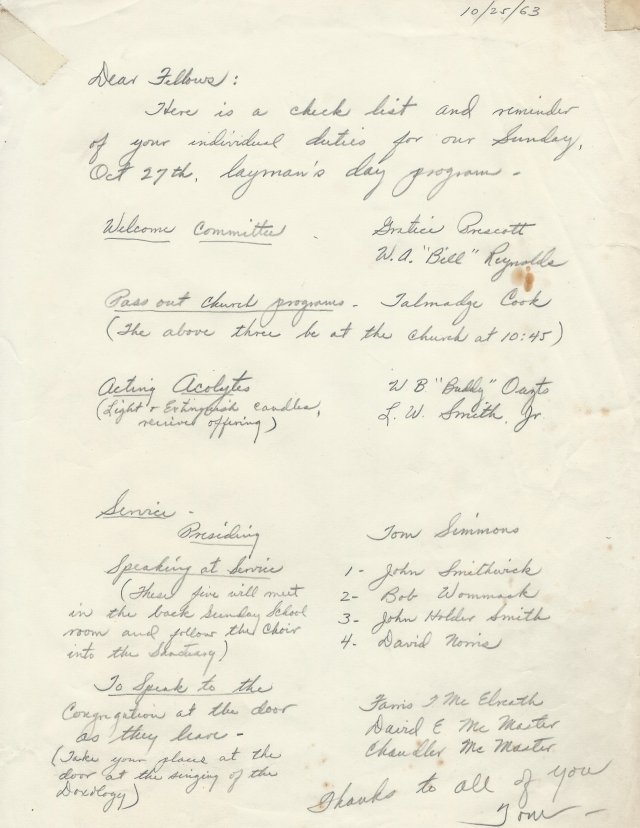 10/25/63
Dear Fellows:
Here is a check list and reminder
of your individual duties for our Sunday,
Oct 27th, layman's day program -
Welcome Committee Gratice Prescott
W. A. "Bill" Reynolds
Pass out church programs - Talmadge Cook
(The above three be at the church at 10:45)
Acting Acolytes W B "Buddy" Ouzts
(Light & Extinguish candles, L. W. Smith, Jr
receive offering)
Service -
Presiding Tom Simmons
Speaking at Service 1 - John Smithwick
(These five will meet 2 - Bob Wommack
in the back Sunday School 3 - John Holder Smith
room and follow the choir 4. David Norris
into the Sanctuary)
To Speak to the Farris I McElreath
Congregation at the door David E McMaster
as they leave - Chandler McMaster
(Take your place at the
door at the singing of the
Doxology)
Thanks to all of you
Tom -